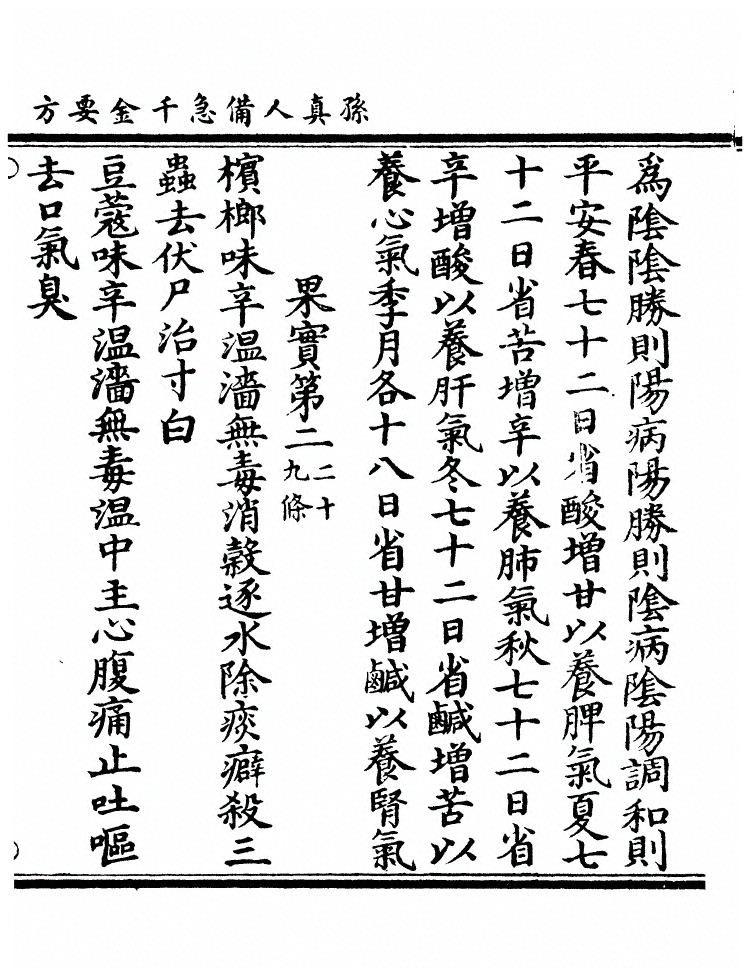 孫真人備急千金要方
為陰陰勝則陽病陽勝則陰病陰陽調和則
平安春七十二日省酸增甘以養脾氣夏七
十二日省苦增辛以養肺氣秋七十二日省
辛增酸以養肝氣冬七十二日省鹹增苦以
養心氣季月各十八日省甘增鹹以養腎氣
果實第二二十九條
檳榔味辛溫濇無毒消穀逐水除痰癖殺三
蟲去伏尸治寸白
豆蔻味辛溫濇無毒溫中主心腹痛止吐嘔
去口氣臭